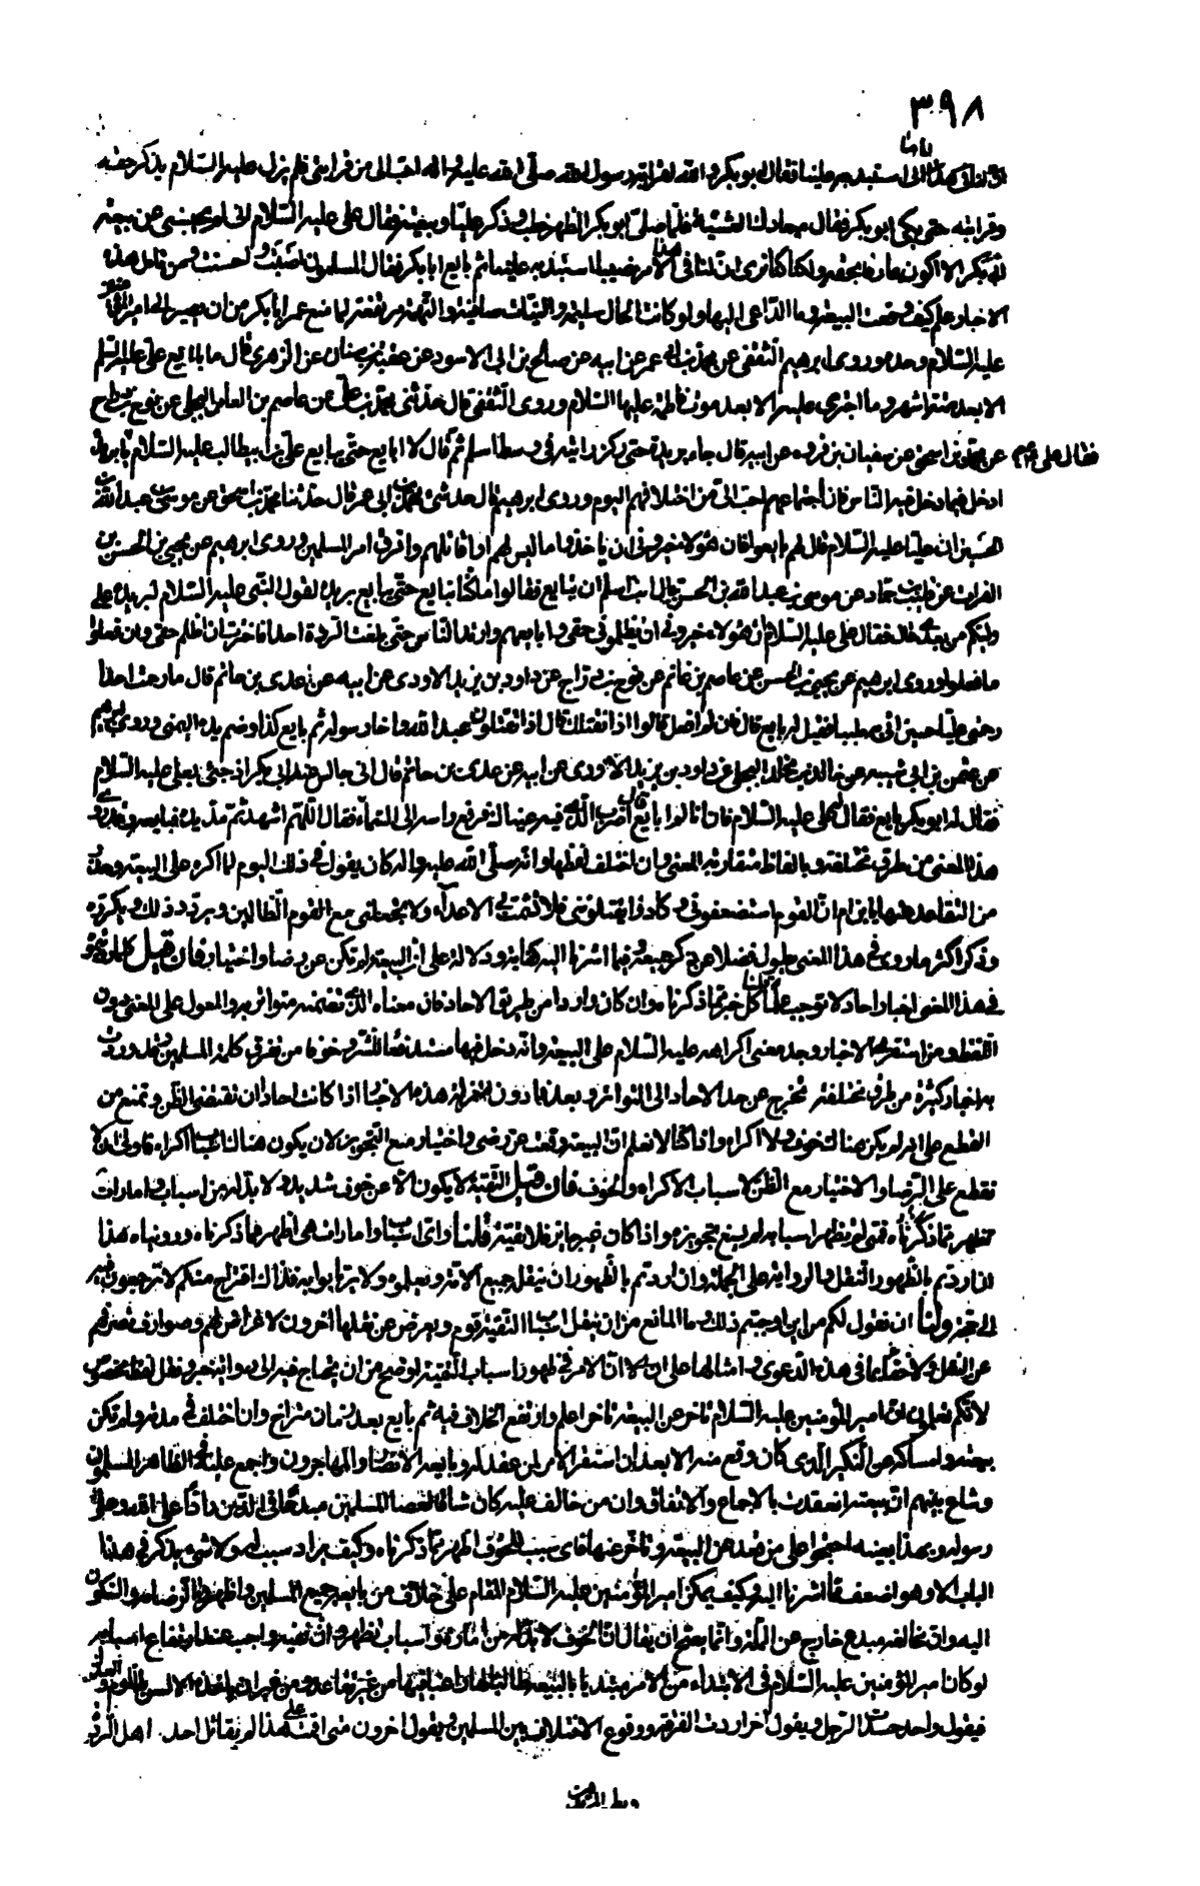 ٣٩٨
فقال ابو بكر والله لقرابة رسول الله صلى الله عليه واله احب الى من قرابتى فلم يزل عليه السلام يذكر حقه
وقرابته حتى بكى ابو بكر فقال ميعادك العشية فلما صلى ابو بكر الظهر خطب فذكر عليا وبيعته فقال على عليه السلام انى لم يحبسنى عن بيعة
ابى بكر الا اكون عارفا بحقه ولكنا كنا نرى ان لنا فى هذا الامر نصيبا استبد به علينا ثم بايع ابا بكر فقال المسلمون اصبت واحسنت ومن تامل هذه
الاخبار علم كيف وقعت البيعة وما الداعى اليها ولو كانت الحال سليمة والنيات صافية والتهمة مرتفعة لما منع عمر ابا بكر من ان يصير الى امير المؤمنين
عليه السلام وحده وروى ابرهيم الثقفى عن محمد بن ابى عمر عن ابيه عن صالح بن ابى الاسود عن عقبة بن سنان عن الزهرى قال ما بايع على عليه السلام
الا بعد ستة اشهر وما اجترى عليه الا بعد موت فاطمة عليها السلام وروى الثقفى قال حدثنى محمد بن على عن عاصم بن العامر البجلى عن نوح بن دراج
عن محمد بن اسحق عن سفيان بن فروه عن ابيه قال جاء بريدة حتى ركز رايته فى وسط اسلم ثم قال لا ابايع حتى يبايع على بن ابيطالب عليه السلام يا بريدة
فقال على ع
ادخل فيما دخل فيه الناس فان اجتماعهم احب الى من اختلافهم اليوم وروى ابرهيم قال حدثنى محمد بن ابى عمر قال حدثنا محمد بن اسحق عن موسى بن عبد الله بن
الحسن ان عليا عليه السلام قال لهم بايعوا فان هؤلاء خيرونى ان ياخذوا ما ليس لهم او اقاتلهم وافرق امر المسلمين وروى ابرهيم عن يحيى بن الحسن بن
الفرات عن قليب بن حماد عن موسى بن عبد الله بن الحسن قال ابت اسلم ان يبايع فقالوا ما كنا نبايع حتى يبايع بريدة لقول النبى عليه السلام لبريدة على
وليكم من بعدى قال فقال على عليه السلام ان هؤلاء خيرونى ان يظلمونى حقى وابايعهم وارتد الناس حتى بلغت الردة احدا فاخترت ان اظلم حقى وان فعلوا
ما فعلوا وروى ابرهيم عن يحيى بن الحسن عن عاصم بن عامر عن نوح بن دراج عن داود بن يزيد الاودى عن ابيه عن عدى بن حاتم قال ما رحمت احدا
رحمتى عليا حين اتى به ملببا فقيل له بايع قال فان لم افعل قالوا اذا نقتلك قال اذا تقتلون عبد الله واخا رسوله ثم بايع كذا وضم يده اليمنى وروى ابرهيم
عن عثمن بن ابى شيبه عن خالد بن مخلد البجلى عن داود بن يزيد الاودى عن ابيه عن عدى بن حاتم قال انى جالس عند ابى بكر اذ جئ بعلى عليه السلام
فقال له ابو بكر بايع فقال له على عليه السلام فان انا لم ابايع قال اضرب الذى فيه عيناك فرفع راسه الى السماء فقال اللهم اشهد ثم مد يده فبايعه وقد روى
هذا المعنى من طرق مختلفة وبالفاظ متقاربة المعنى وان اختلف لفظها وانه صلى الله عليه واله كان يقول فى ذلك اليوم لما اكره على البيعة وحذر
من التقاعد عنها يا بن ام ان القوم استضعفونى وكادوا يقتلوننى فلا تشمت بى الاعداء ولا تجعلنى مع القوم الظالمين ويردد ذلك ويكرره
وذكر اكثر ما روى فى هذا المعنى يطول فضلا عن ذكر جميعه وفيما اشرنا اليه كفاية ودلالة على ان البيعة لم تكن عن رضا واختيار فان قيل كلما رويتموه
فى هذا المعنى اخبار احاد لا توجب علما قلنا كل خبر مما ذكرناه وان كان واردا من طريق الاحاد فان معناه الذى تضمنه متواتر به والمعول على المعنى دون
اللفظ ومن استقرى الاخبار وجد معنى اكراهه عليه السلام على البيعة وانه دخل فيها مستدفعا للشر وخوفا من تفرق كلمة المسلمين وقد وردت
به اخبار كثيرة من طرق مختلفة تخرج عن حد الاحاد الى التواتر وبعد فادون منزلة هذه الاخبار اذا كانت احادا ان تقتضى الظن وتمنع من
القطع على انه لم يكن هناك خوف ولا اكراه واذا كنا لا نعلم ان البيعة وقعت عن رضى واختيار مع التجويز لان يكون هناك اسباب اكراه فاولى ان لا
نقطع على الرضا والاختيار مع الظن لاسباب الاكراه والخوف فان قيل التقية لا يكون الا عن خوف شديد ولا بد له من اسباب وامارات
تظهر مما ذكرتموه فمتى لم يظهر اسبابه لم يسغ تجويزه واذا كان غير جايز فلا تقية قلنا واى اسباب وامارات هى اظهر مما ذكرناه ورويناه هذا
ان اردتم بالظهور النقل والرواية على الجملة وان اردتم بالظهور ان ينقل جميع الامة ويعلموه ولا يرتابوا به فذاك اقتراح منكم لا ترجعون فيه
الى حجة ولنا ان نقول لكم من اين اوجبتم ذلك وما المانع من ان ينقل اسباب التقية قوم ويعرض عن نقلها اخرون لاغراض لهم وصوارف تصرفهم
عن النقل ولا خفاء بما فى هذه الدعوى وامثالها على ان الامر فى ظهور اسباب التقية اوضح من ان يحتاج فيه الى رواية خبر ونقل لفظ مخصوص
لانكم تعلمون ان امير المؤمنين عليه السلام تاخر عن البيعة تاخرا علم وارتفع الخلاف فيه ثم بايع بعد زمان متراخ وان اختلف فى مدته ولم تكن
بيعته وامساكه عن النكير الذى كان وقع منه الا بعد ان استقر الامر لمن عقد له وبايعه الانصار والمهاجرون واجمع عليه فى الظاهر المسلمون
وشاع بينهم ان بيعته انعقدت بالاجماع والاتفاق وان من خالف عليه كان شاقا لعصا المسلمين مبدعا فى الدين رادا على الله وعلى
رسوله وبهذا بعينه احتجوا على من قعد عن البيعة وتاخر عنها فاى سبب للخوف اظهر مما ذكرناه وكيف يراد سبب له ولا شئ يذكر فى هذا
الباب الا وهو اضعف مما اشرنا اليه وكيف يمكن امير المؤمنين عليه السلام المقام على خلاف من بايعه جميع المسلمين واظهروا الرضا به والسكون
اليه وان مخالفه مبدع خارج عن الملة وانما يصح ان يقال ان الخوف لا بد له من امارة واسباب تظهر وان نفيه واجب عند ارتفاع اسبابه
لو كان امير المؤمنين عليه السلام فى الابتداء من الامر مبتديا بالبيعة طالبا لها راغبا فيها من غير تقاعد ومن غير ان ياخذه الالسن باللوم والعذل
فيقول واحد حسدت الرجل ويقول اخر اردت الفرقة ووقوع الاختلاف بين المسلمين ويقول اخرون متى اقمت على هذا لم يقاتل احد اهل الردة